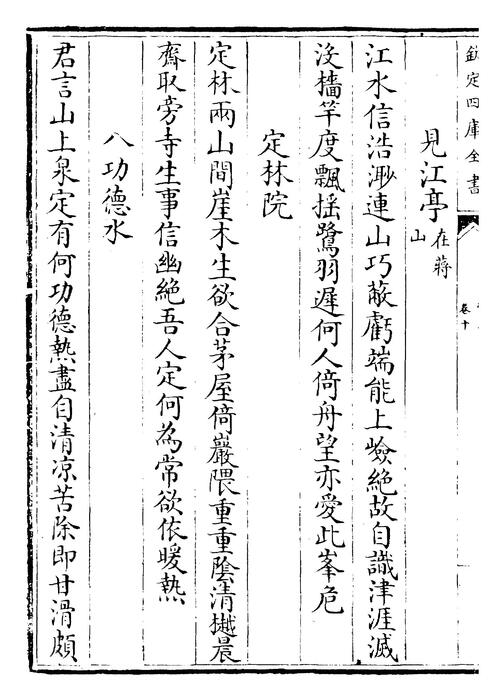 欽定四庫全書
卷十
見江亭在蔣山
江水信浩渺連山巧蔽虧端能上嶮絶故自識津涯滅
没檣竿度飄揺鷺羽遲何人倚舟望亦愛此峯危
定林院
定林兩山間崖木生欲合茅屋倚巖隈重重隂清樾晨
齋取旁寺生事信幽絶吾人定何為常欲依暖熱
八功德水
君言山上泉定有何功德熱盡自清凉苦除即甘滑頗